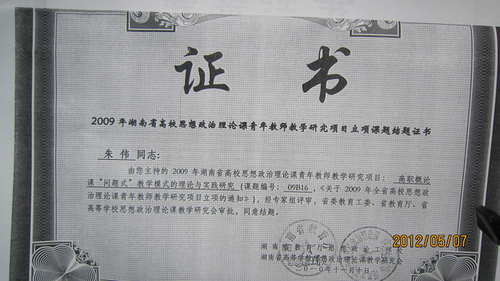 证书
2009年湖南省高校思想政治理论课青年教师教学研究项目立项课题结题证书
朱伟同志：
由您主持的2009年湖南省高校思想政治理论课青年教师教学研究项目：高职概论
课“问题式”教学模式的理论与实践研究（课题编号：09B16，《关于2009年全省高校思想政
治理论课青年教师教学研究项目立项的通知》），经专家组评审，省委教育工委、省教育厅、省
高等学校思想政治理论课教学研究会审批，同意结题。
湖南省教育厅思想政治工作
湖南省高等学校思想政治理论课教学研究会
二〇一〇年十一月十日
2012/05/07